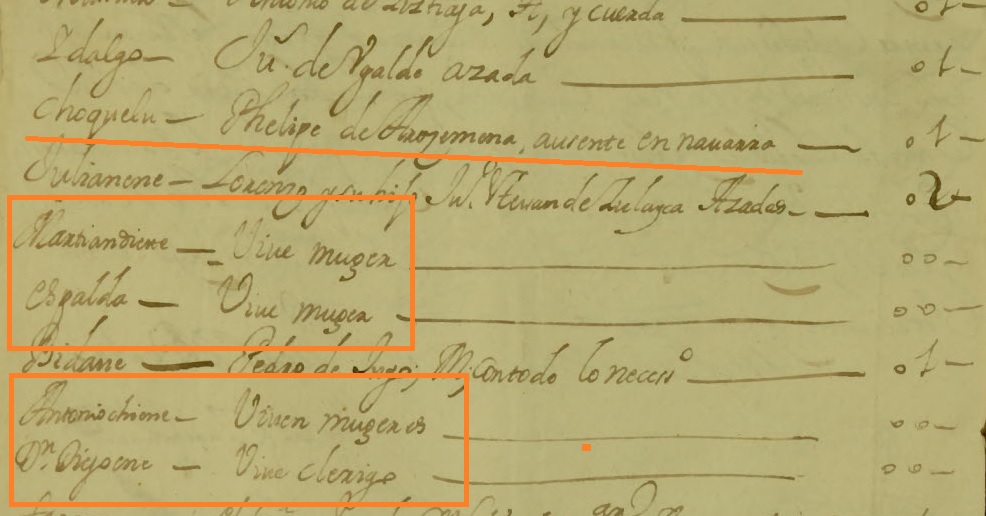 Antonio de Liztiaga, A, y cuerda — 01 —
Idalgo — Ju.º de Vgalde azada — 01 —
Choquelu — Phelipe de Arozemena, ausente en nauarra — 01 —
Julianene — Lorenzo y su hijo Ju.º Esteuan de Zulayca Azadas — 02
Martiandiene — Viue muger — 00 —
espalda — Viue muger — 00
Bidane — Pedro de Jugo; M, Con todo lo necess.º — 01 —
Antoniochiene — Viuen mugeres — 00 —
D.n Diegoene — Viue clerigo — 00 —